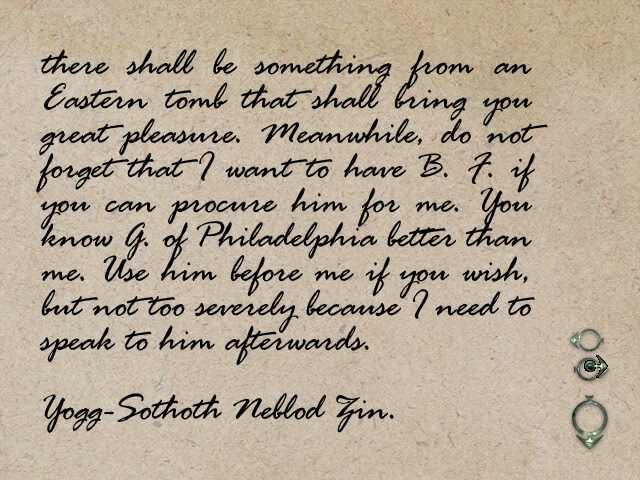 there shall be something from an
Eastern tomb that shall bring you
great pleasure. Meanwhile, do not
forget that I want to have B. F. if
you can procure him for me. You
know G. of Philadelphia better than
me. Use him before me if you wish,
but not too severely because I need to
speak to him afterwards.
Yogg-Sothoth Neblod Zin.